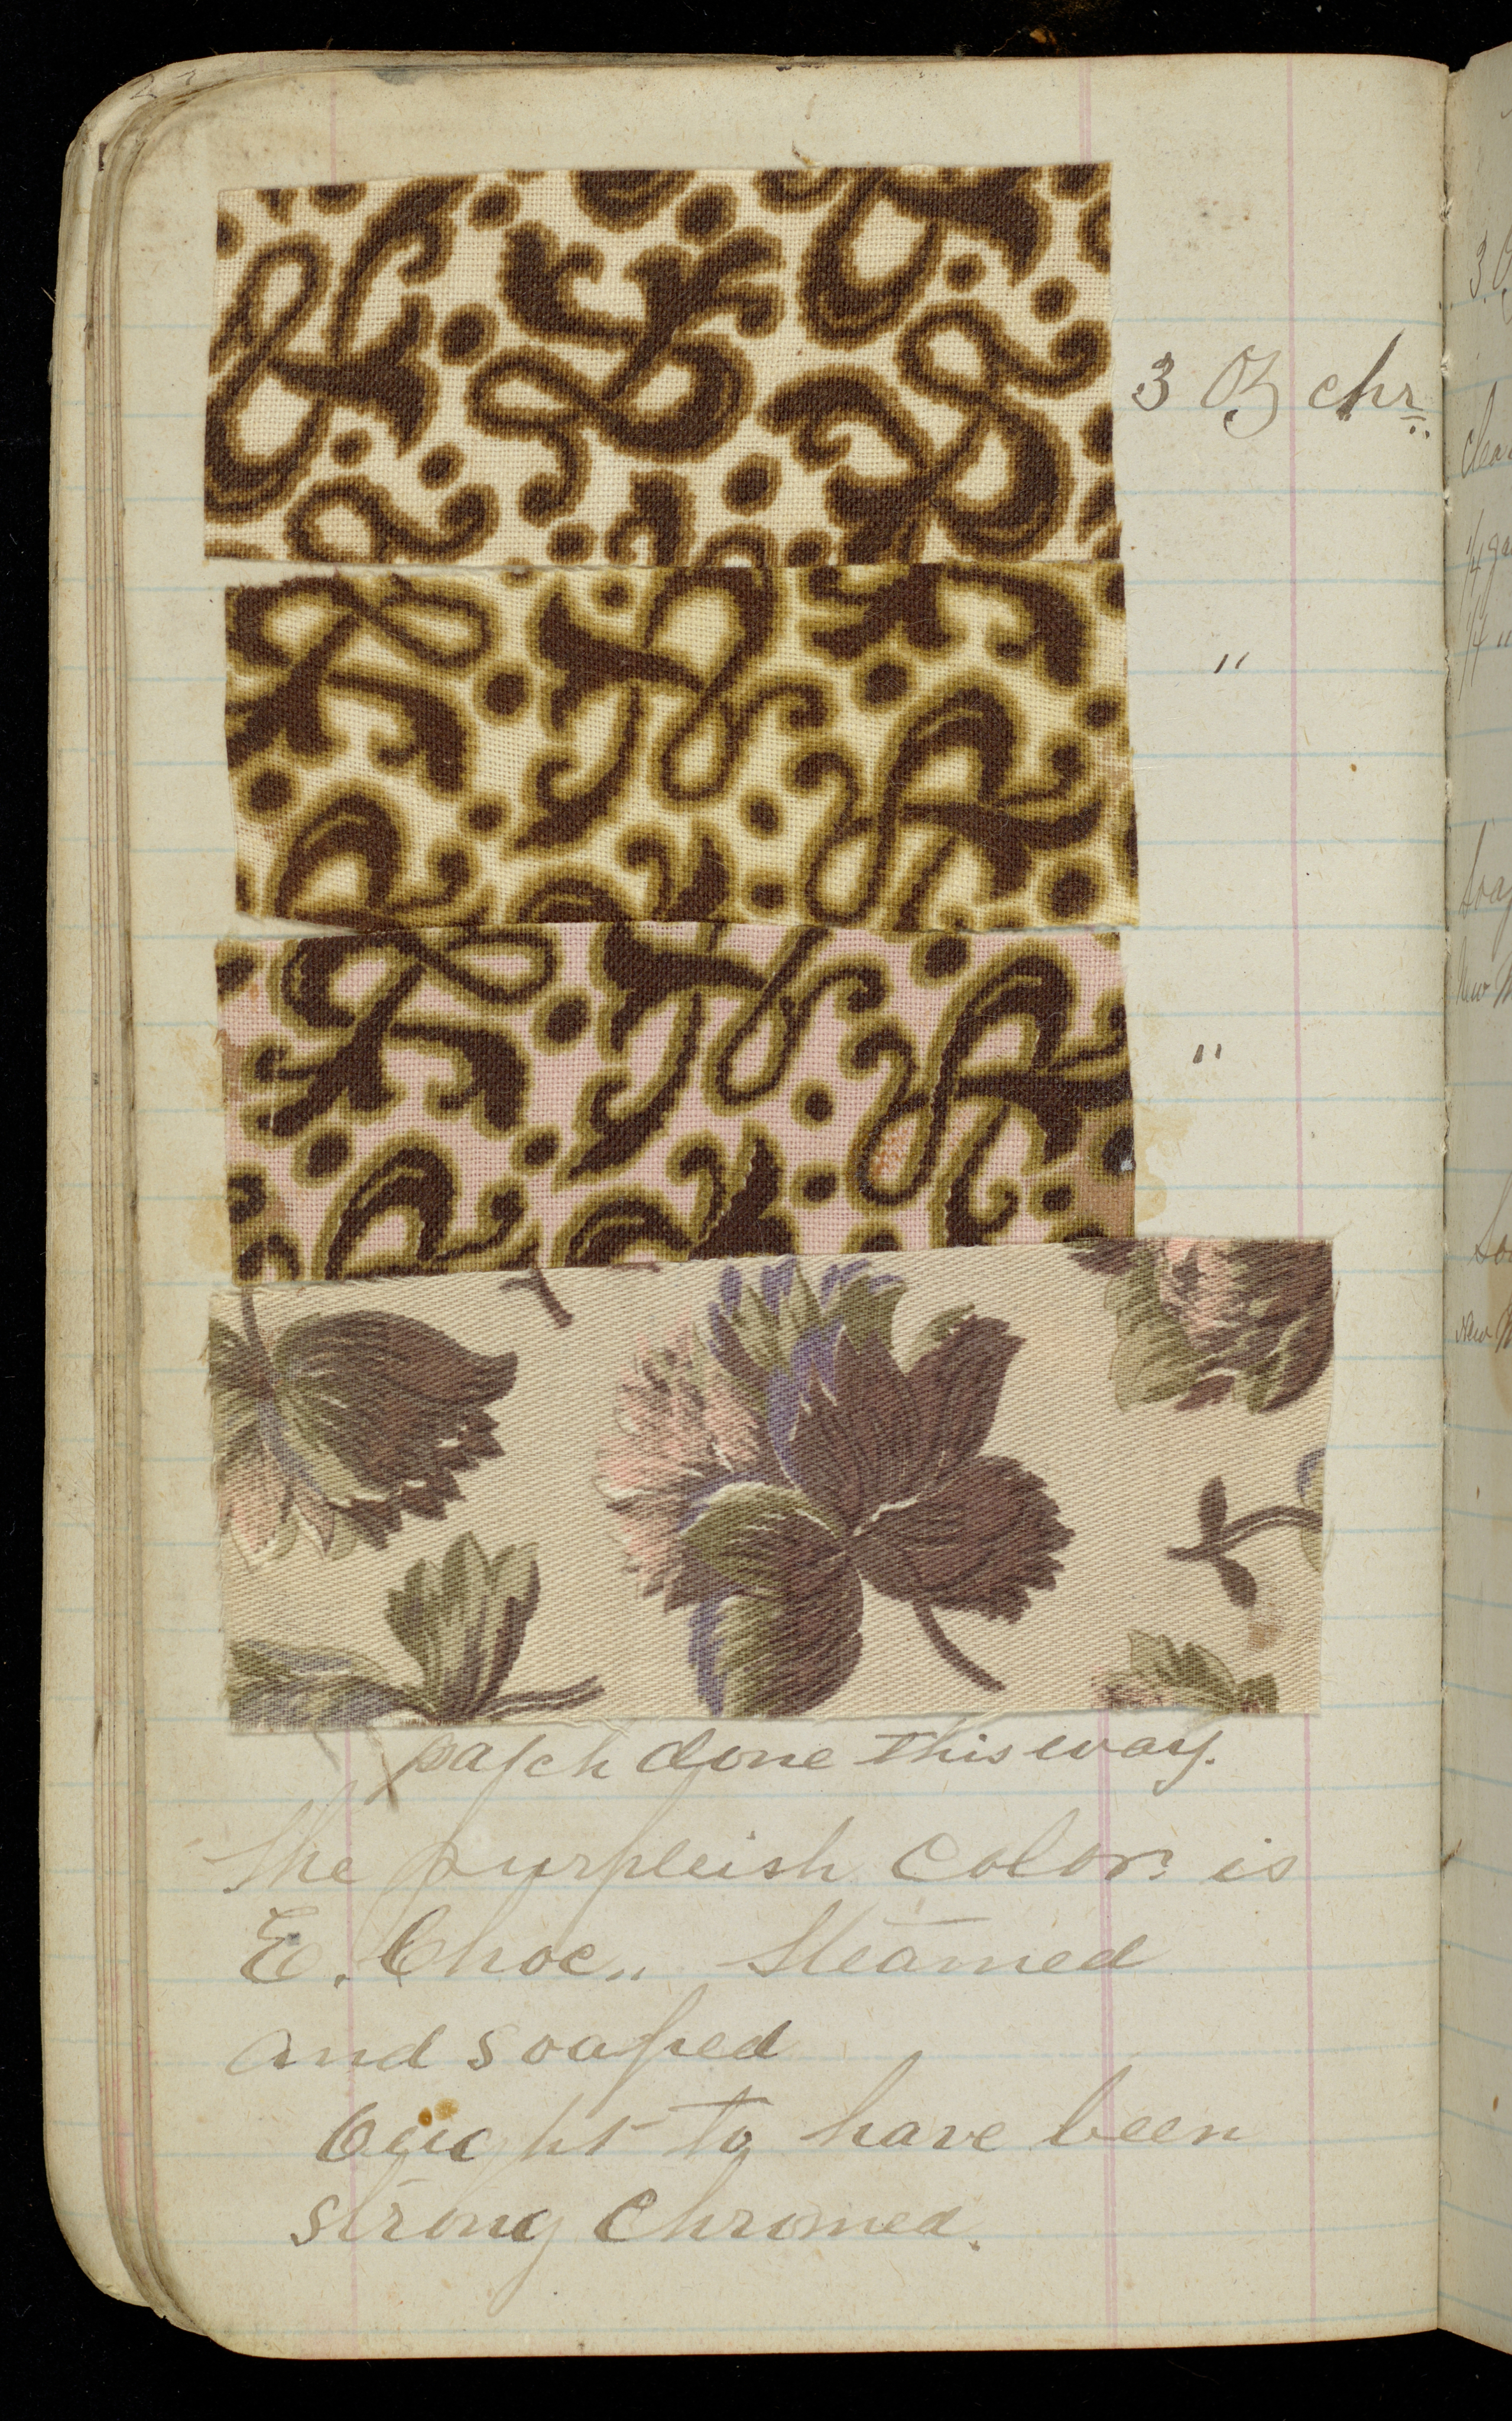 3 Oz chr.
"
"
patch done this way.
The purpleish color is
E. Choc,, Steamed
and soaped
Ought to have been
strong Chromed.